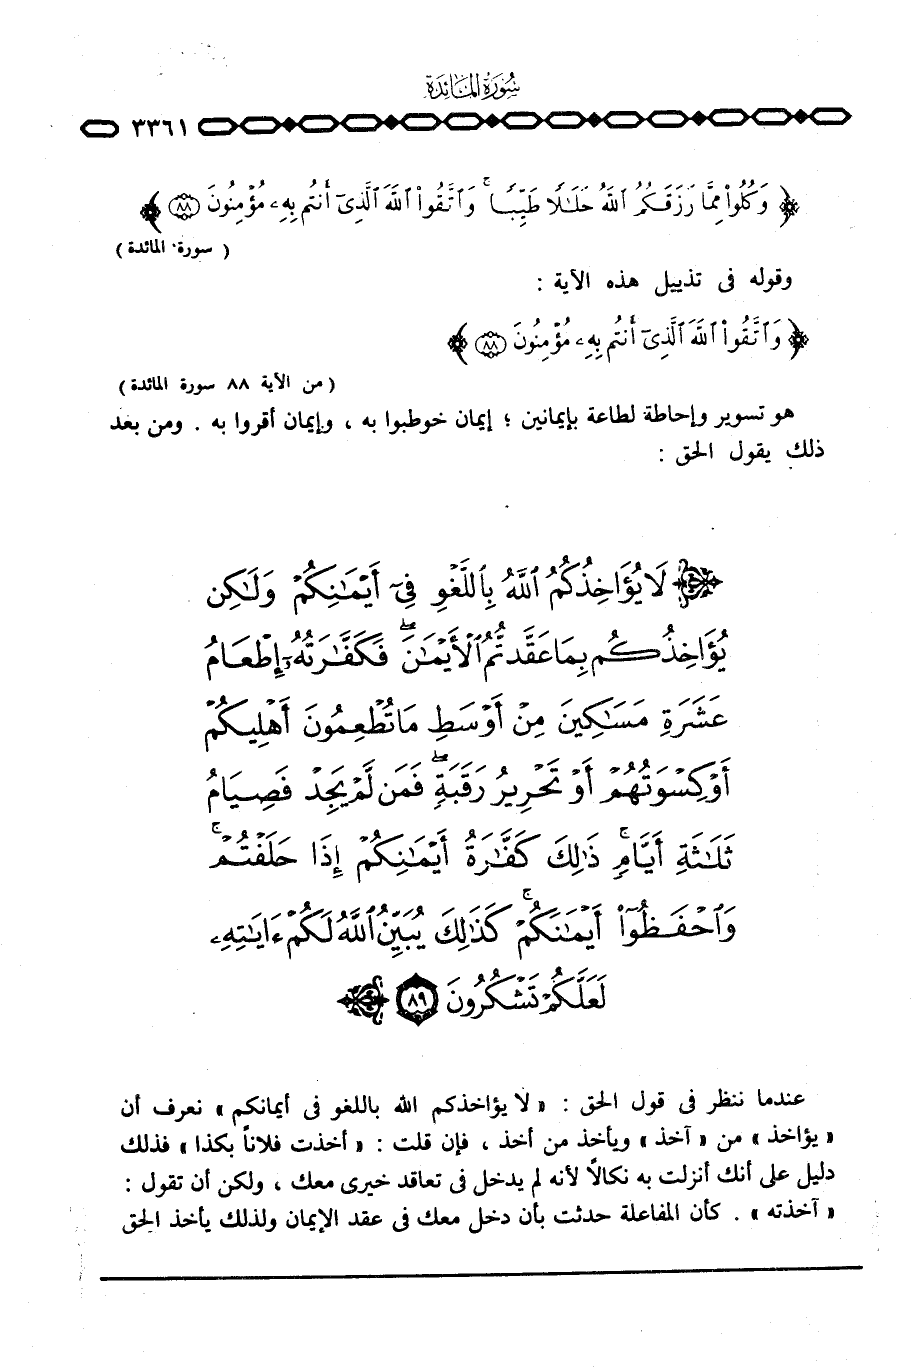 سُورَةُ المَائِدَةِ
٣٣٦١
﴿ وَكُلُوا۟ مِمَّا رَزَقَكُمُ ٱللَّهُ حَلَـٰلًا طَيِّبًا ۚ وَٱتَّقُوا۟ ٱللَّهَ ٱلَّذِىٓ أَنتُم بِهِۦ مُؤْمِنُونَ ﴿٨٨﴾ ﴾
( سورة المائدة )
وقوله فى تذييل هذه الآية :
﴿ وَٱتَّقُوا۟ ٱللَّهَ ٱلَّذِىٓ أَنتُم بِهِۦ مُؤْمِنُونَ ﴿٨٨﴾ ﴾
( من الآية ٨٨ سورة المائدة )
هو تسوير وإحاطة لطاعة بإيمانين ؛ إيمان خوطبوا به ، وإيمان أقروا به . ومن بعد
ذلك يقول الحق :
لَا يُؤَاخِذُكُمُ ٱللَّهُ بِٱللَّغْوِ فِىٓ أَيْمَـٰنِكُمْ وَلَـٰكِن
يُؤَاخِذُكُم بِمَا عَقَّدتُّمُ ٱلْأَيْمَـٰنَ ۖ فَكَفَّـٰرَتُهُۥٓ إِطْعَامُ
عَشَرَةِ مَسَـٰكِينَ مِنْ أَوْسَطِ مَا تُطْعِمُونَ أَهْلِيكُمْ
أَوْ كِسْوَتُهُمْ أَوْ تَحْرِيرُ رَقَبَةٍ ۖ فَمَن لَّمْ يَجِدْ فَصِيَامُ
ثَلَـٰثَةِ أَيَّامٍ ۚ ذَٰلِكَ كَفَّـٰرَةُ أَيْمَـٰنِكُمْ إِذَا حَلَفْتُمْ ۚ
وَٱحْفَظُوٓا۟ أَيْمَـٰنَكُمْ ۚ كَذَٰلِكَ يُبَيِّنُ ٱللَّهُ لَكُمْ ءَايَـٰتِهِۦ
لَعَلَّكُمْ تَشْكُرُونَ ﴿٨٩﴾
عندما ننظر فى قول الحق : « لا يؤاخذكم الله باللغو فى أيمانكم » نعرف أن
« يؤاخذ » من « آخذ » ويأخذ من أخذ ، فإن قلت : « أخذت فلاناً بكذا » فذلك
دليل على أنك أنزلت به نكالاً لأنه لم يدخل فى تعاقد خيرى معك ، ولكن أن تقول :
« آخذته » . كأن المفاعلة حدثت بأن دخل معك فى عقد الإيمان ولذلك يأخذ الحق